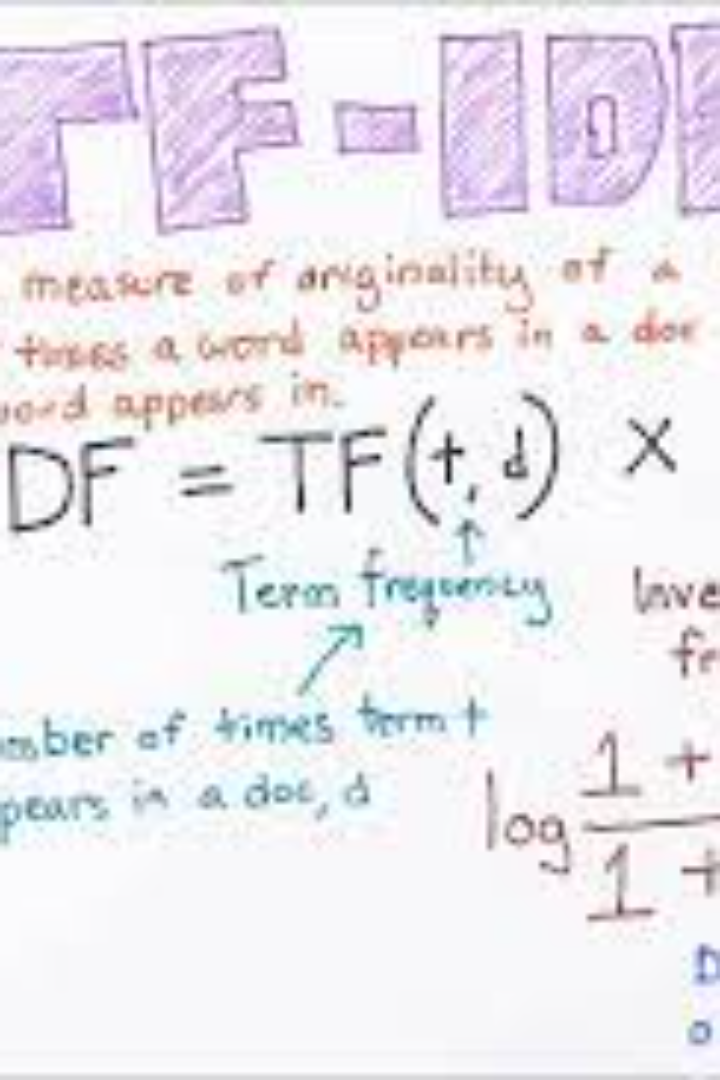 TF-IDF
measure of originality of a
times a word appears in a doc
word appears in.
DF = TF(t, d) ×
Term frequency
Inve
fr
mber of times term t
pears in a doc, d
log 1 +
1 +
D
o